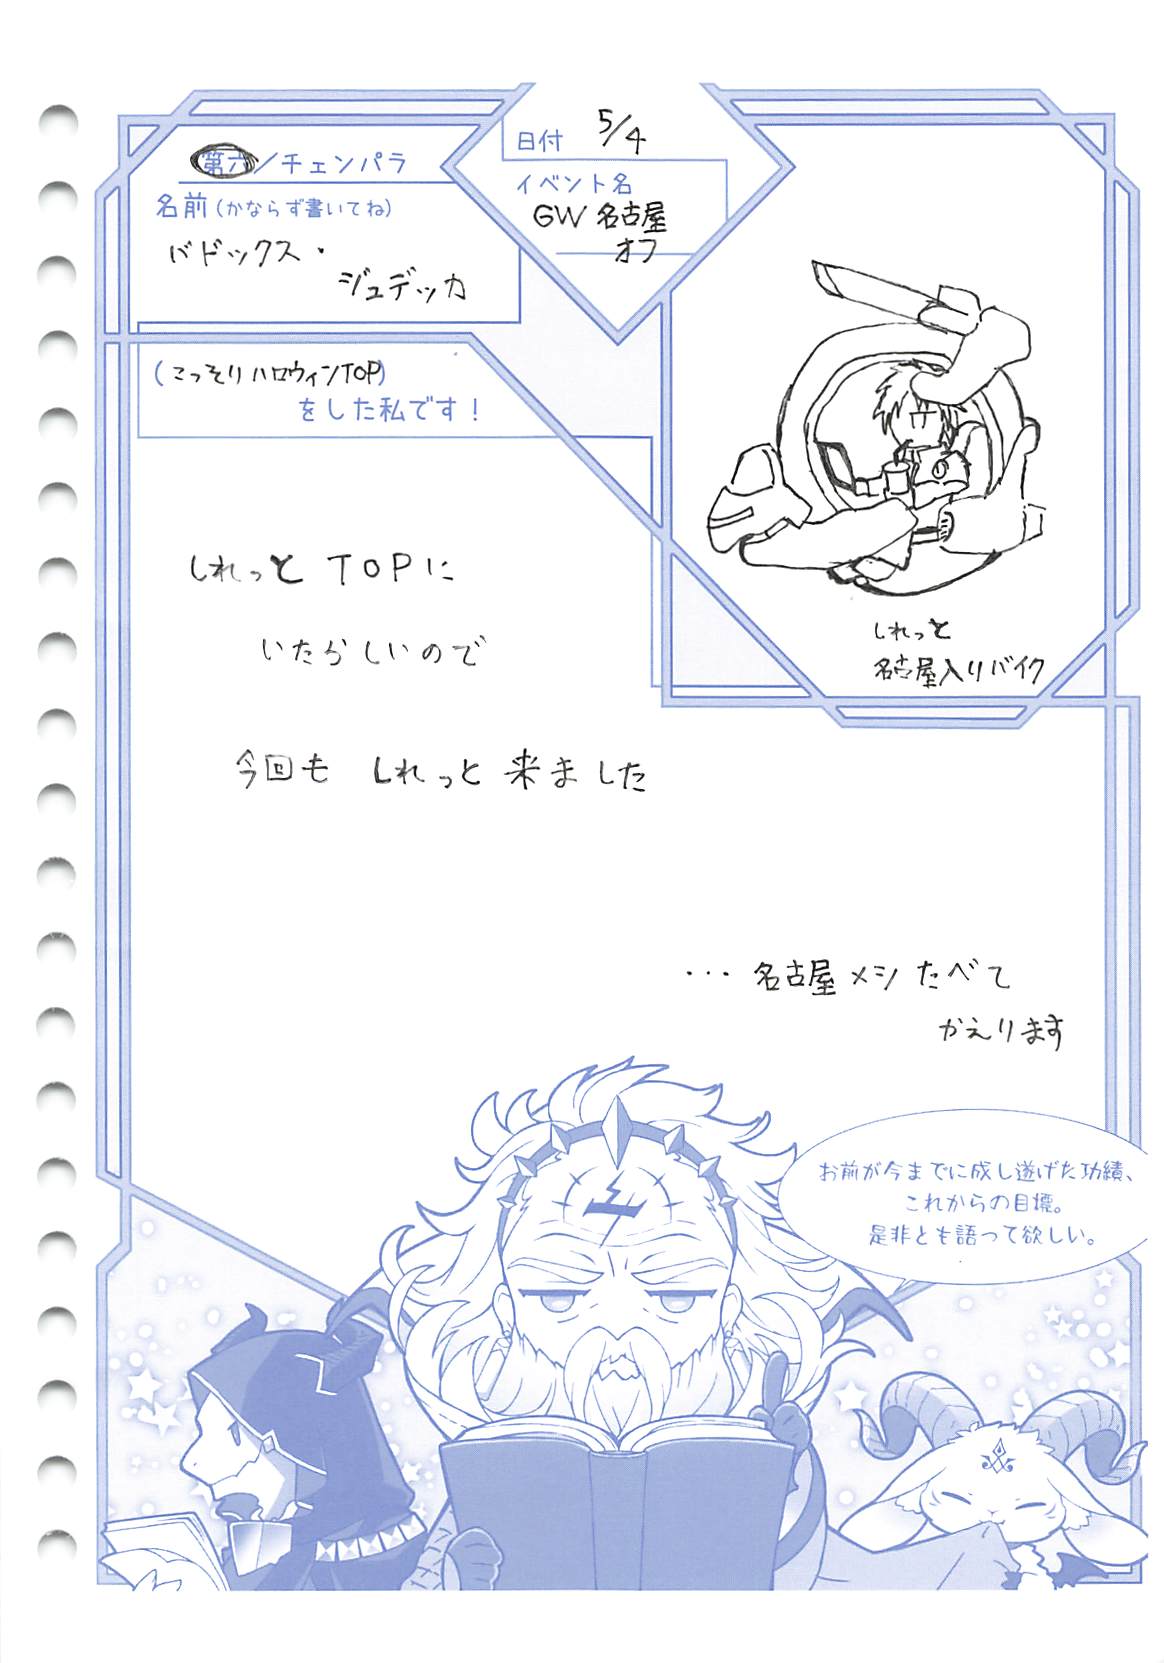 第六／チェンパラ
名前(かならず書いてね)
バドックス・
ジュデッカ
日付 5/4
イベント名
GW 名古屋
オフ
(こっそりハロウィンTOP)
をした私です！
しれっと
名古屋入りバイク
しれっと TOPに
いたらしいので
今回も しれっと 来ました
・・・名古屋メシたべて
かえります
お前が今までに成し遂げた功績、
これからの目標。
是非とも語って欲しい。